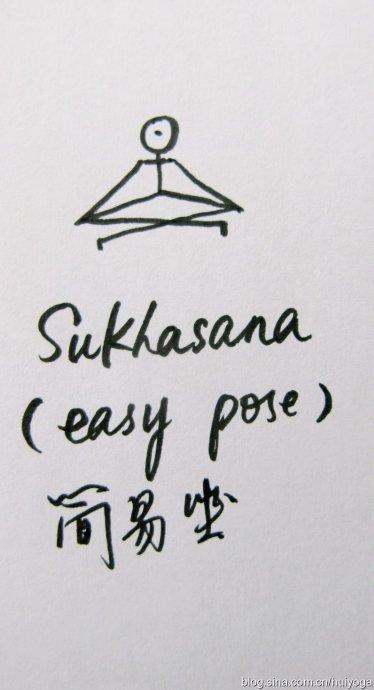 Sukhasana
(easy pose)
简易坐
blog.sina.com.cn/huiyoga